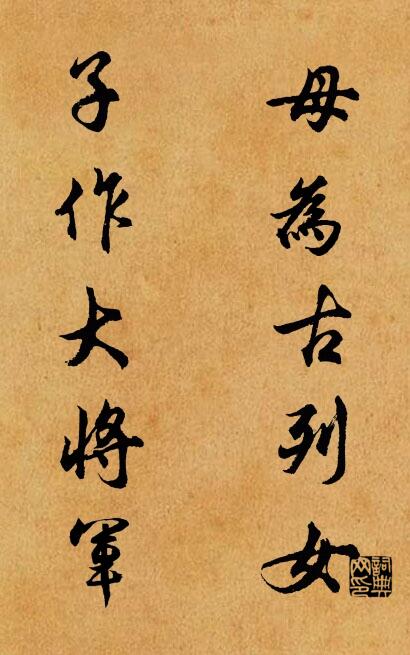 母為古列女
子作大將軍
詞典網印